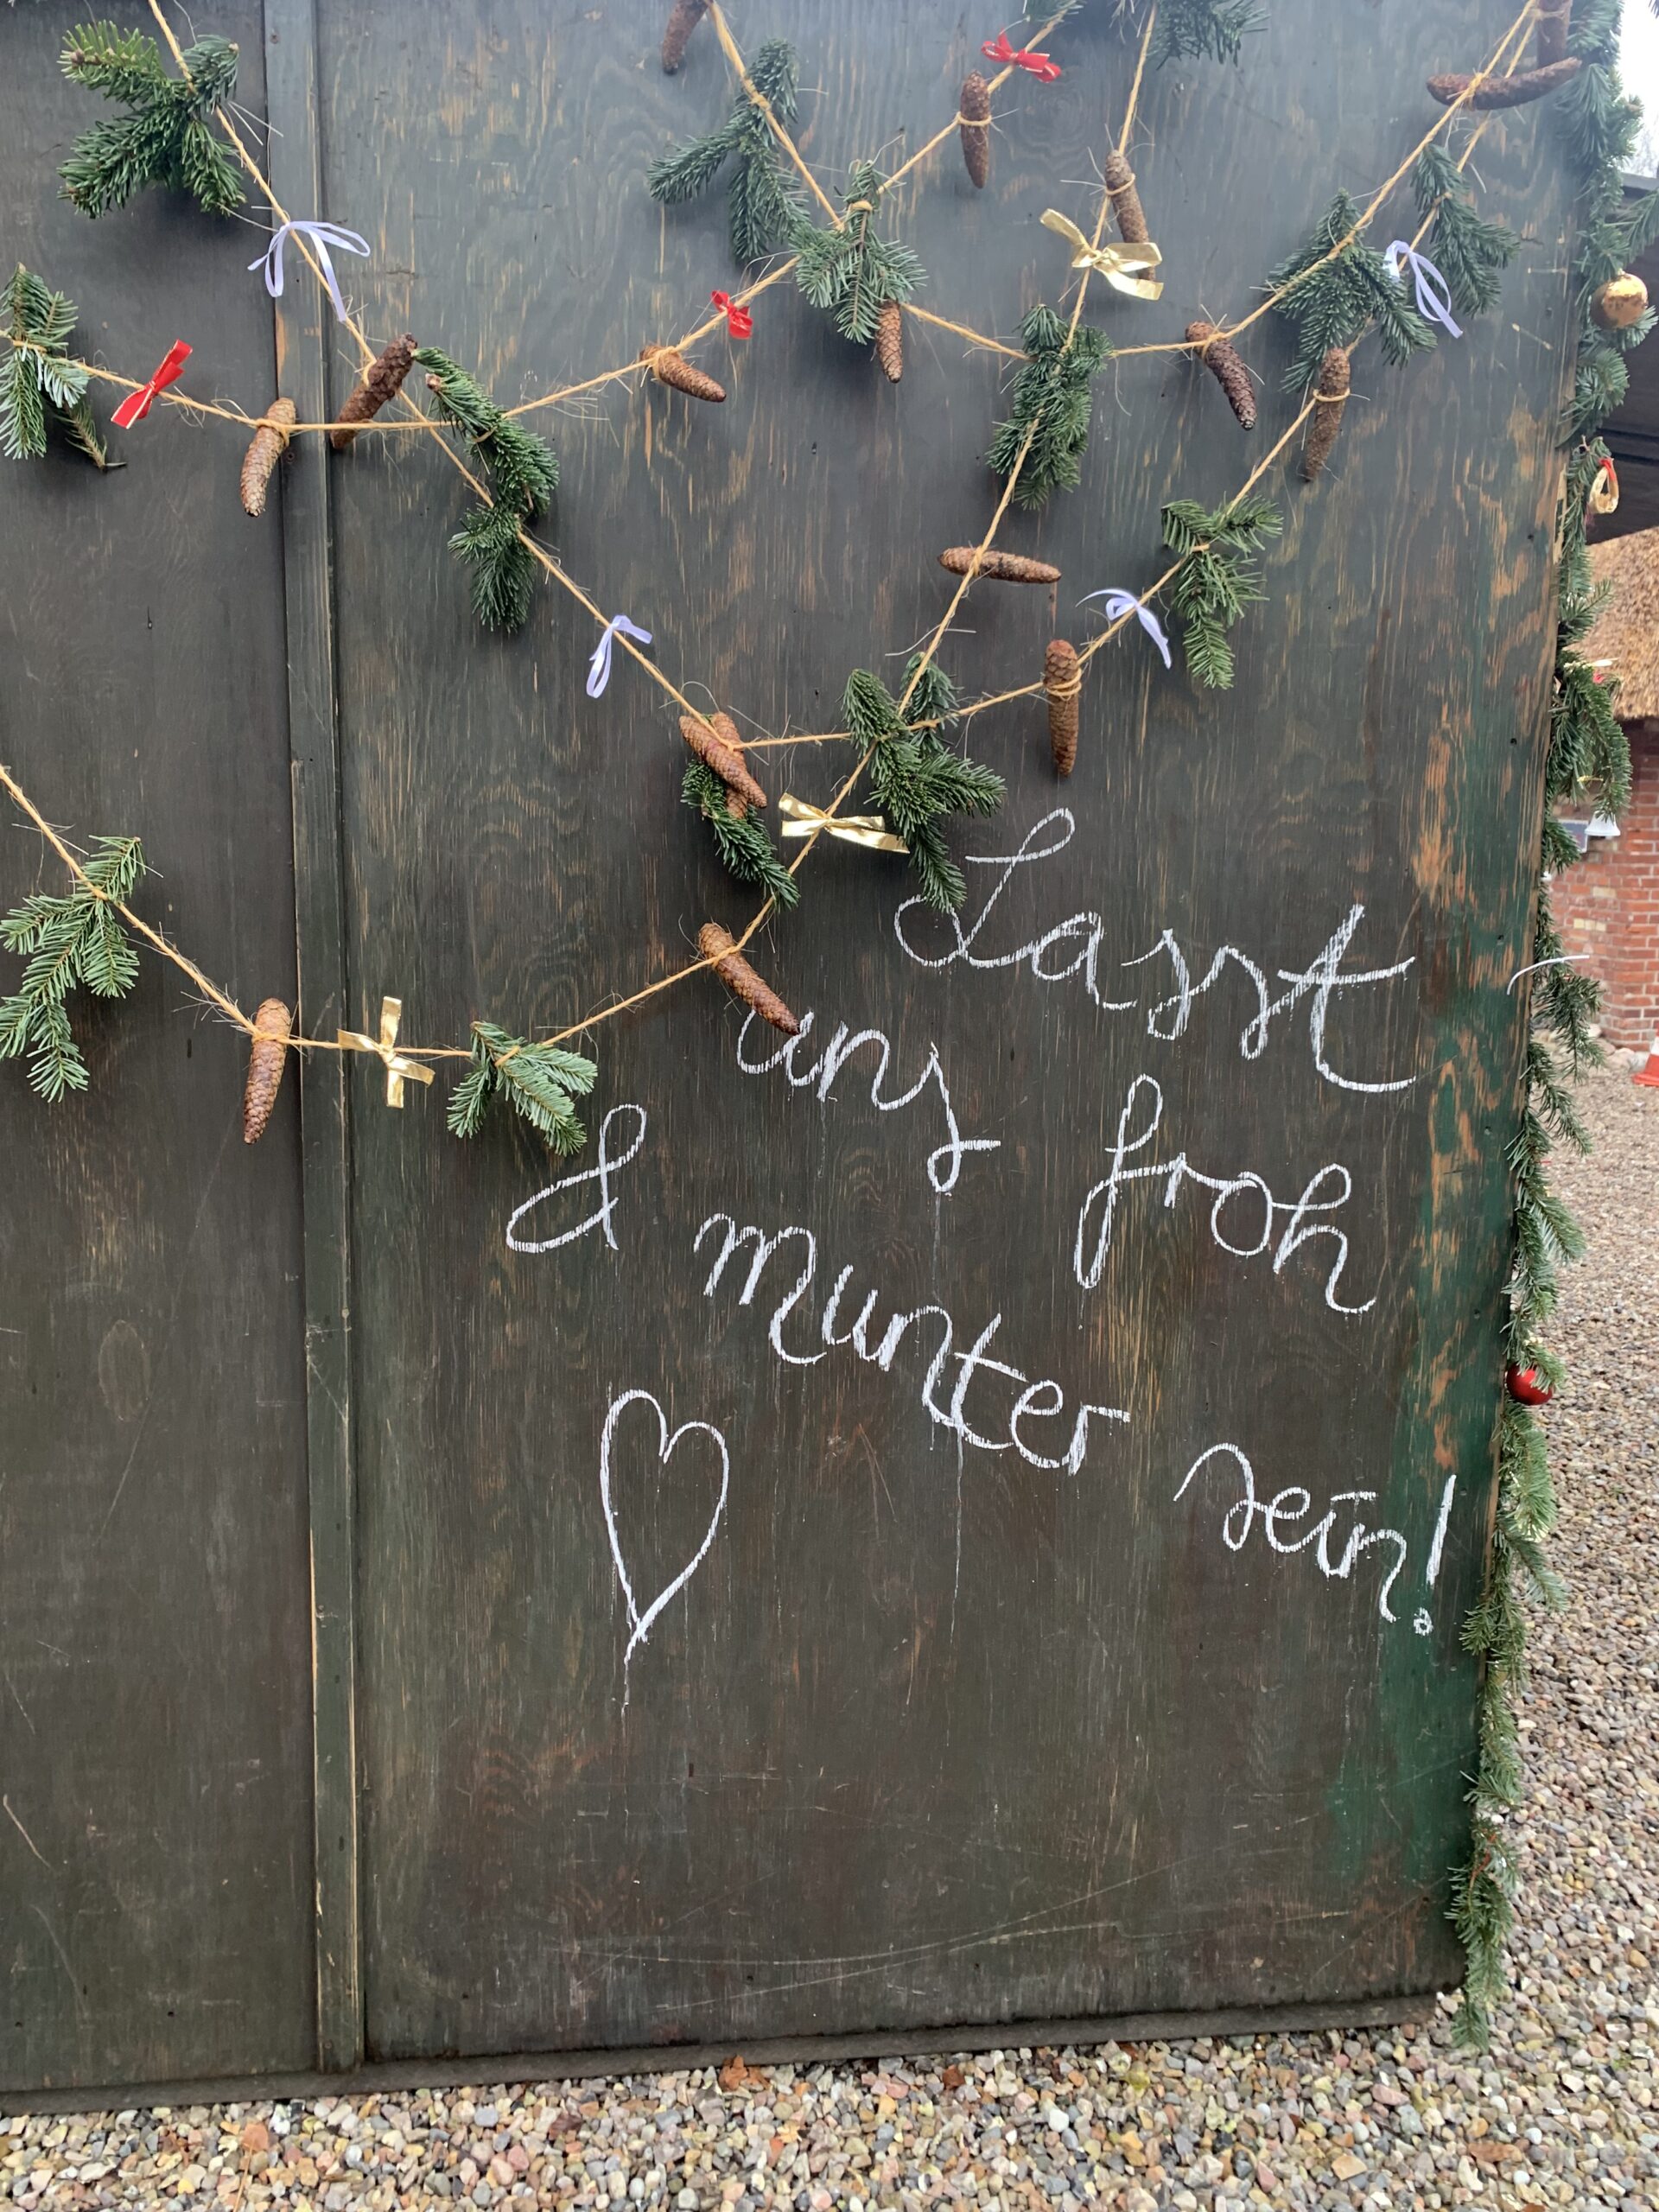 Lasst
uns froh
& munter sein!